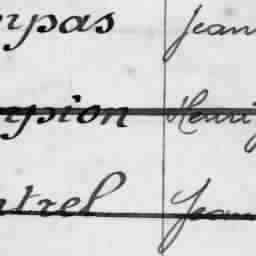 mpas Jean
mpion Henri
ntrel Jean